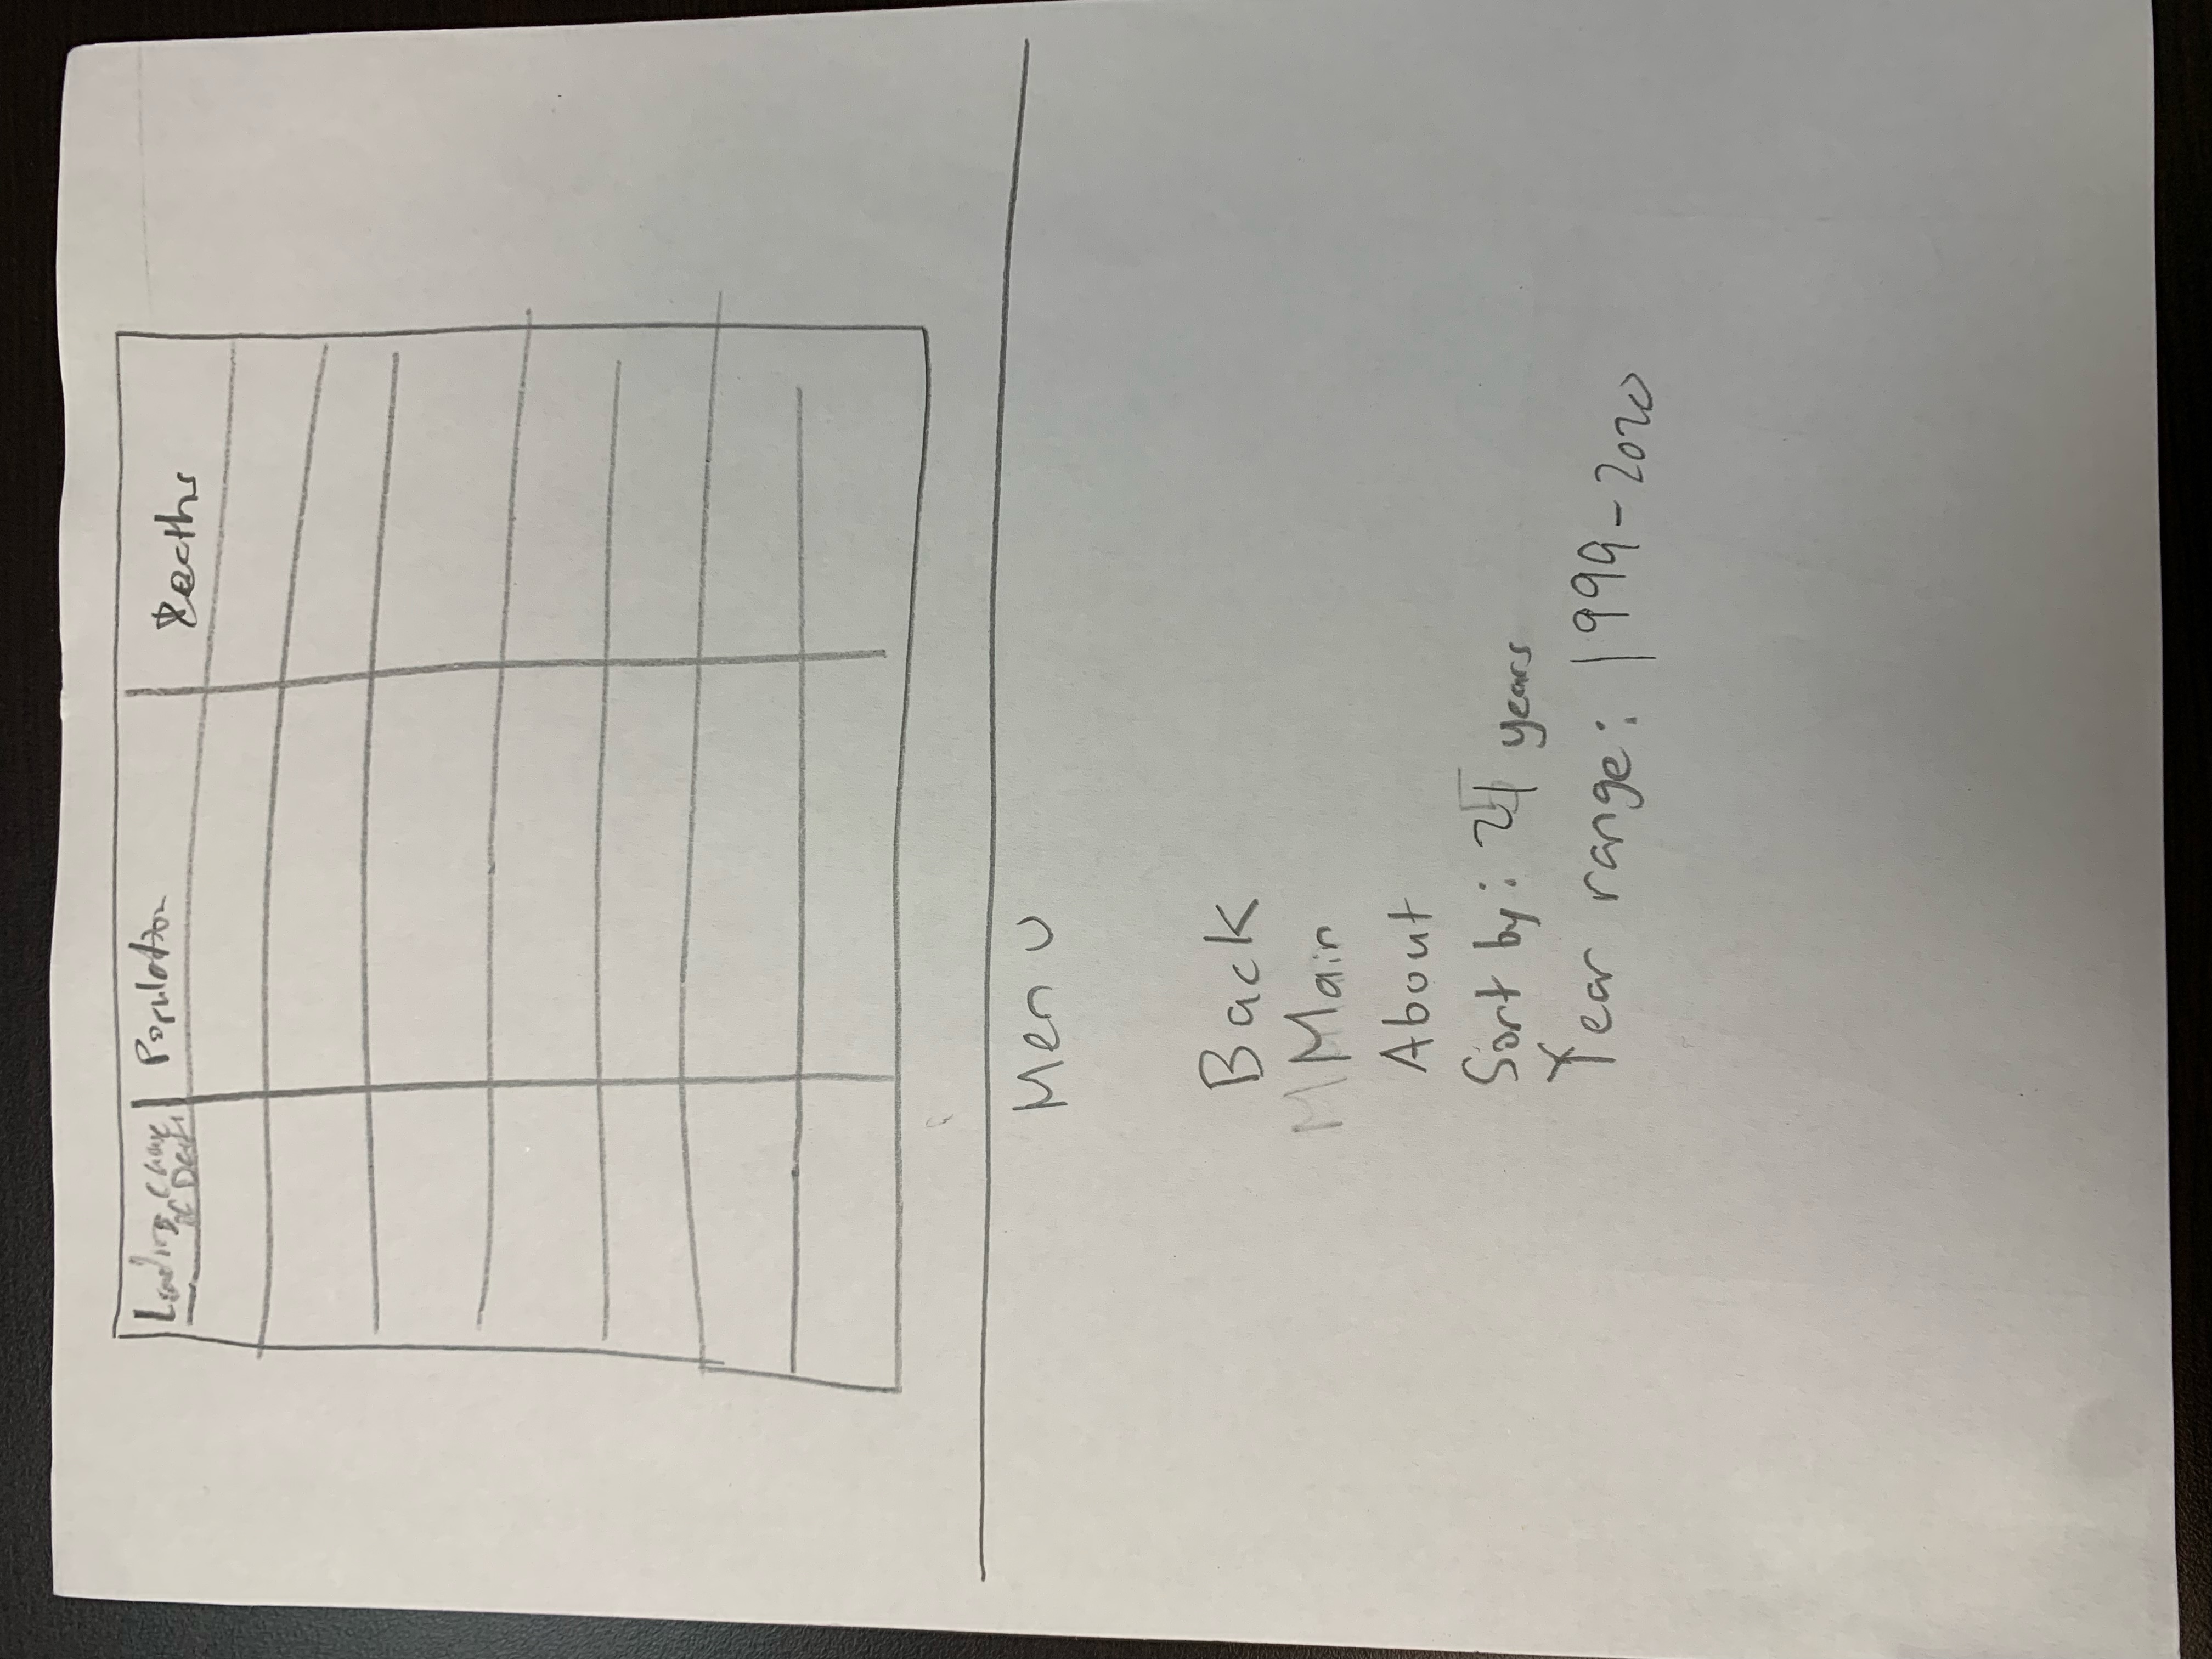 Leading cause Population Deaths
of Death
Menu
Back
Main
About
Sort by: 21 years
Year range: 1999-2020